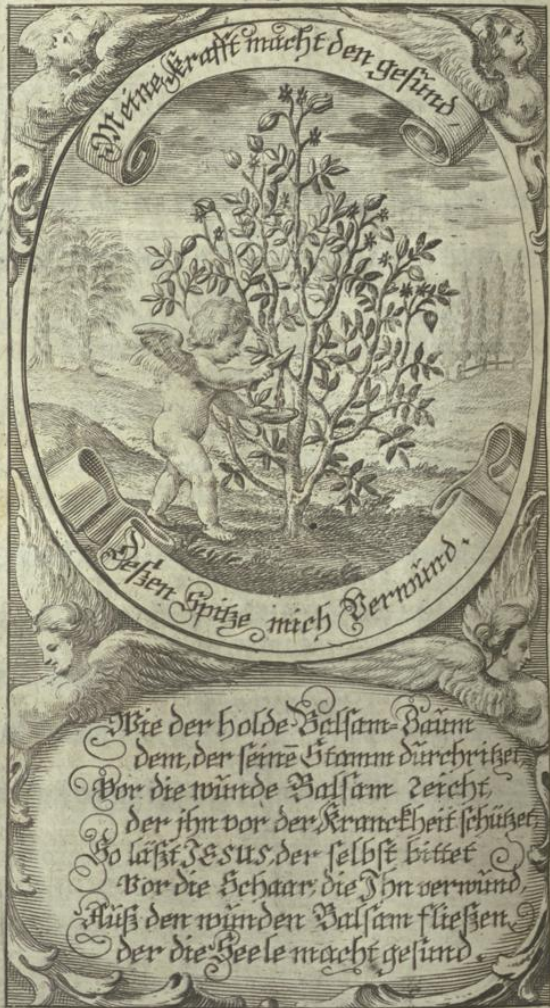 Meine Krafft macht den gesund,
Deßen Spitze mich Verwund.
Wie der holde Balsam-Baum
dem, der seinē Stamm durchritzet,
Vor die wunde Balsam reicht,
der jhn vor der Kranckheit schützet;
So läßt JESUS, der selbst bittet
Vor die Schaar, die Jhn verwund,
Auß den wunden Balsam fließen,
der die Seele macht gesund.